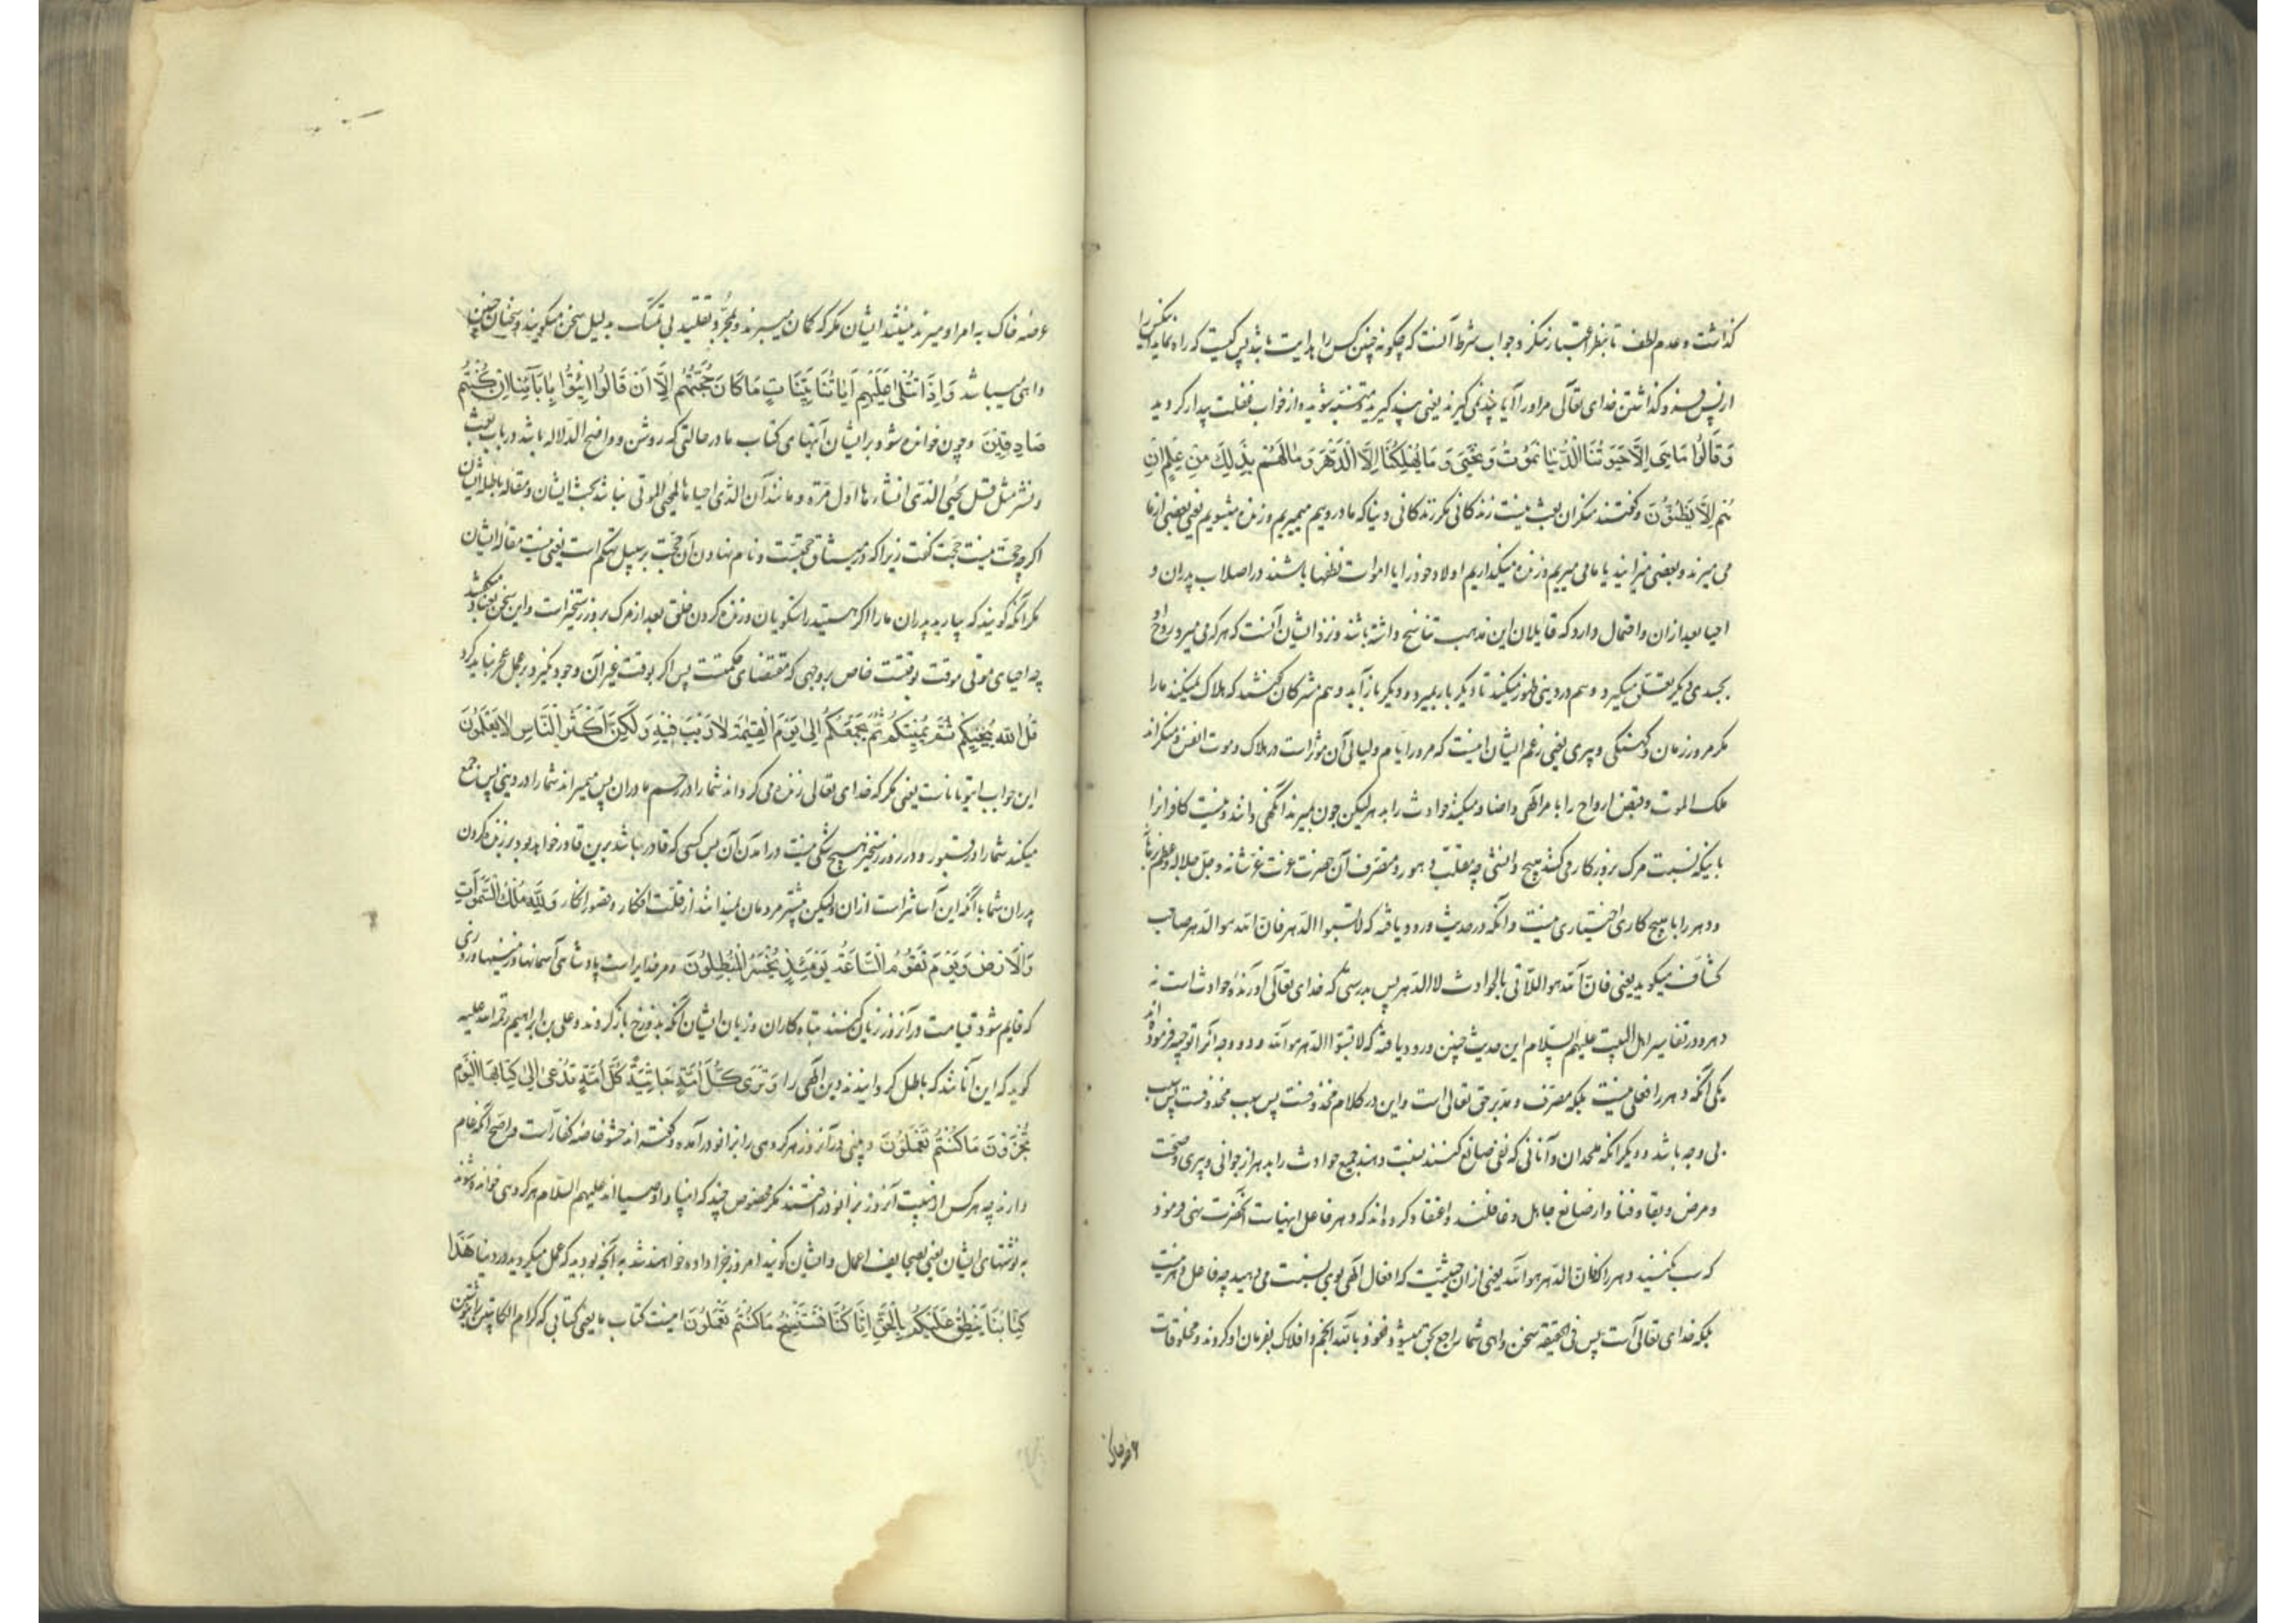 گذاشت و عدم لطف تا بنظر اعتبار ننگرد و جواب شرط آنست که چگونه چنین کس را هدایت باشد پس کیست که راه نماید
از پس فرو گذاشتن خدای تعالی مر او را آیا پند نمی گیرند یعنی پند گیرید و متنبه شوید و از خواب غفلت بیدار گردید
وَقَالُوا مَا هِىَ اِلاَّ حَيَوتُنَا الدُّنْيَا نَمُوتُ وَنَحْيَى وَ مَا يُهْلِكُنَا اِلاَّ الدَّهْرُ وَ مَا لَهُمْ بِذَلِكَ مِنْ عِلْمٍ اِنْ
هُمْ اِلاَّ يَظُنُّونَ و گفتند منکران بعث نیست زندگانی مگر زندگانی دنیا که ما درویم میمیریم و زنده میشویم یعنی بعضی از ما
می میرند و بعضی میزایند یا ما می میریم و زنده میگذاریم اولاد خود را یا اموات نطفها باشند در اصلاب پدران و
احیا بعد ازان و احتمال دارد که قایلان این مذهب تناسخ داشته باشند و نزد ایشان آنست که هر که می میرد روح او
بجسدی دیگر تعلق میگیرد و هم در دینی ظهور میکند تا دیگر بار بمیرد و دیگر باز آید و هم مشرکان گفتند که هلاک نمیکند ما را
مگر مرور زمان و کهنگی و پیری یعنی زعم ایشان اینست که مرور ایام و لیالی آن مؤثر است در هلاک و موت انفس و منکراند
ملک الموت و قبض ارواح را بامر الهی و اضافه میکنند حوادث را بدهر لیکن چون بمیرند آنگهی دانند و نیست کافرانرا
باینکه نسبت مرگ بروزگار می کنند هیچ دانشی چه مقلب دهور و متصرف آن حضرت عزت عز شانه و جل جلاله و عظم برهانه
و دهر را با هیچ کاری اختیاری نیست و آنکه در حدیث ورود یافته که لا تسبوا الدهر فان الله هو الدهر صاحب
کشاف میگوید یعنی فان الله هو الآتی بالحوادث لا الدهر پس بدرستی که خدای تعالی آورنده حوادث است نه
دهر و در تفاسیر اهل البیت علیهم السلام این حدیث چنین ورود یافته که لا تسبوا الدهر هو الله و دو وجه آنرا توجیه فرموده اند
یکی آنکه دهر را فعلی نیست بلکه مصرف و مدبر حق تعالی است و این در کلام محذوفست پس سبب محذوفست پس سبب
بی وجه باشد و دیگر آنکه ملحدان و آنانی که نفی صانع کنند نسبت دهند جمیع حوادث را بدهر از جوانی و پیری و صحت
و مرض و بقا و فنا و از صانع جاهل و غافلند و اعتقاد کرده اند که دهر فاعل اینهاست آنحضرت نهی فرمود
که سب مکنید دهر را فان الدهر هو الله یعنی ازان حیثیت که افعال الهی بوی نسبت می دهید چه فاعل دهر نیست
بلکه خدای تعالی است پس فی الحقیقه سخن واهی شما راجع بحق میشود و نعوذ بالله انجم و افلاک بفرمان او گردند و مخلوقات
عرصه خاک
عرصه خاک به امر او میرند نیستند ایشان مگر که گمان میبرند و بمجرد تقلید بی تمسک بدلیل سخن میگویند و سخنان چنین
واهی میباشد وَاِذَا تُتْلَى عَلَيْهِمْ آيَاتُنَا بَيِّنَاتٍ مَا كَانَ حُجَّتَهُمْ اِلاَّ اَنْ قَالُوا ائْتُوا بِابَآئِنَا اِنْ كُنْتُمْ
صَادِقِينَ و چون خوانده شود بر ایشان آیتهای کتاب ما در حالتی که روشن و واضح الدلاله باشد در باب بعث
و نشر مثل قل یحیی الذی انشاءها اول مرة و مانند آن الذی احیاها لمحیی الموتی نباشد بحث ایشان و مقاله باطله ایشان
اگر چه حجت نیست حجت گفت زیرا که و نام نهادن آن حجت بر سبیل تهکم است یعنی نیست مقاله ایشان
مگر آنکه گویند که بیارید پدران ما را اگر هستید راستگویان و زنده کردن خلق بعد از مرگ بروز رستخیز است و این سخن بعناد میکشد
چه احیای موتی موقت بوقتست خاص بروجهی که مقتضای حکمتست پس اگر بوقت غیر آن وجود نگیرد بر عجز حمل نباید کرد
قُلِ الله يُحْيِيكُمْ ثُمَّ يُمِيتُكُمْ ثُمَّ يَجْمَعُكُمْ اِلَى يَوْمِ الْقِيَمَةِ لَا رَيْبَ فِيهِ وَلَكِنَّ اَكْثَرَ النَّاسِ لَا يَعْلَمُونَ
این جواب ایتوا باباناست یعنی بگو که خدای تعالی زنده می گرداند شما را در رحم مادران پس میمیراند شما را در دینی پس جمع
میکند شما را در قبور و در روز رستخیز هیچ شکی نیست در آمدن آن پس کسی که قادر باشد برین قادر خواهد بود بر زنده کردن
پدران شما با آنکه این آسانتر است ازان ولیکن بیشتر مردمان نمیدانند از قلت افکار و قصور انظار وَلِلَّهِ مُلْكُ السَّمَوَاتِ
وَالْاَرْضِ وَيَوْمَ تَقُومُ السَّاعَةُ يَوْمَئِذٍ يَخْسَرُ الْمُبْطِلُونَ و مر خدایراست پادشاهی آسمانها و زمینها و روزی
که قایم شود قیامت در آنروز زیان کنند تباه کاران و زیان ایشان آنکه بدوزخ باز گردند و علی بن ابراهیم رحمة الله علیه
گوید که این آنانند که باطل گردانیدند دین الهی را وَ تَرَى كُلَّ اُمَّةٍ جَاثِيَةً كُلُّ اُمَّةٍ تُدْعَى اِلَى كِتَابِهَا الْيَوْمَ
تُجْزَوْنَ مَا كُنْتُمْ تَعْمَلُونَ و بینی در آنروز هر گروهی را بزانو در آمده و گفته اند جثو خاصه کفار است و اصح آنکه عام
دارند چه هر کس از هیبت آنروز بزانو در افتند مگر مخصوص چند که انبیا و اوصیا اند علیهم السلام هر گروهی خوانده شوند
به نوشتهای ایشان یعنی بصحایف اعمال و ایشان گویند امروز جزا داده خواهند شد به آنچه بودید که عمل میکردید در دنیا هَذَا
كِتَابُنَا يَنْطِقُ عَلَيْكُمْ بِالْحَقِّ اِنَّا كُنَّا نَسْتَنْسِخُ مَا كُنْتُمْ تَعْمَلُونَ اینست کتاب ما یعنی کتابی که کرام الکاتبین